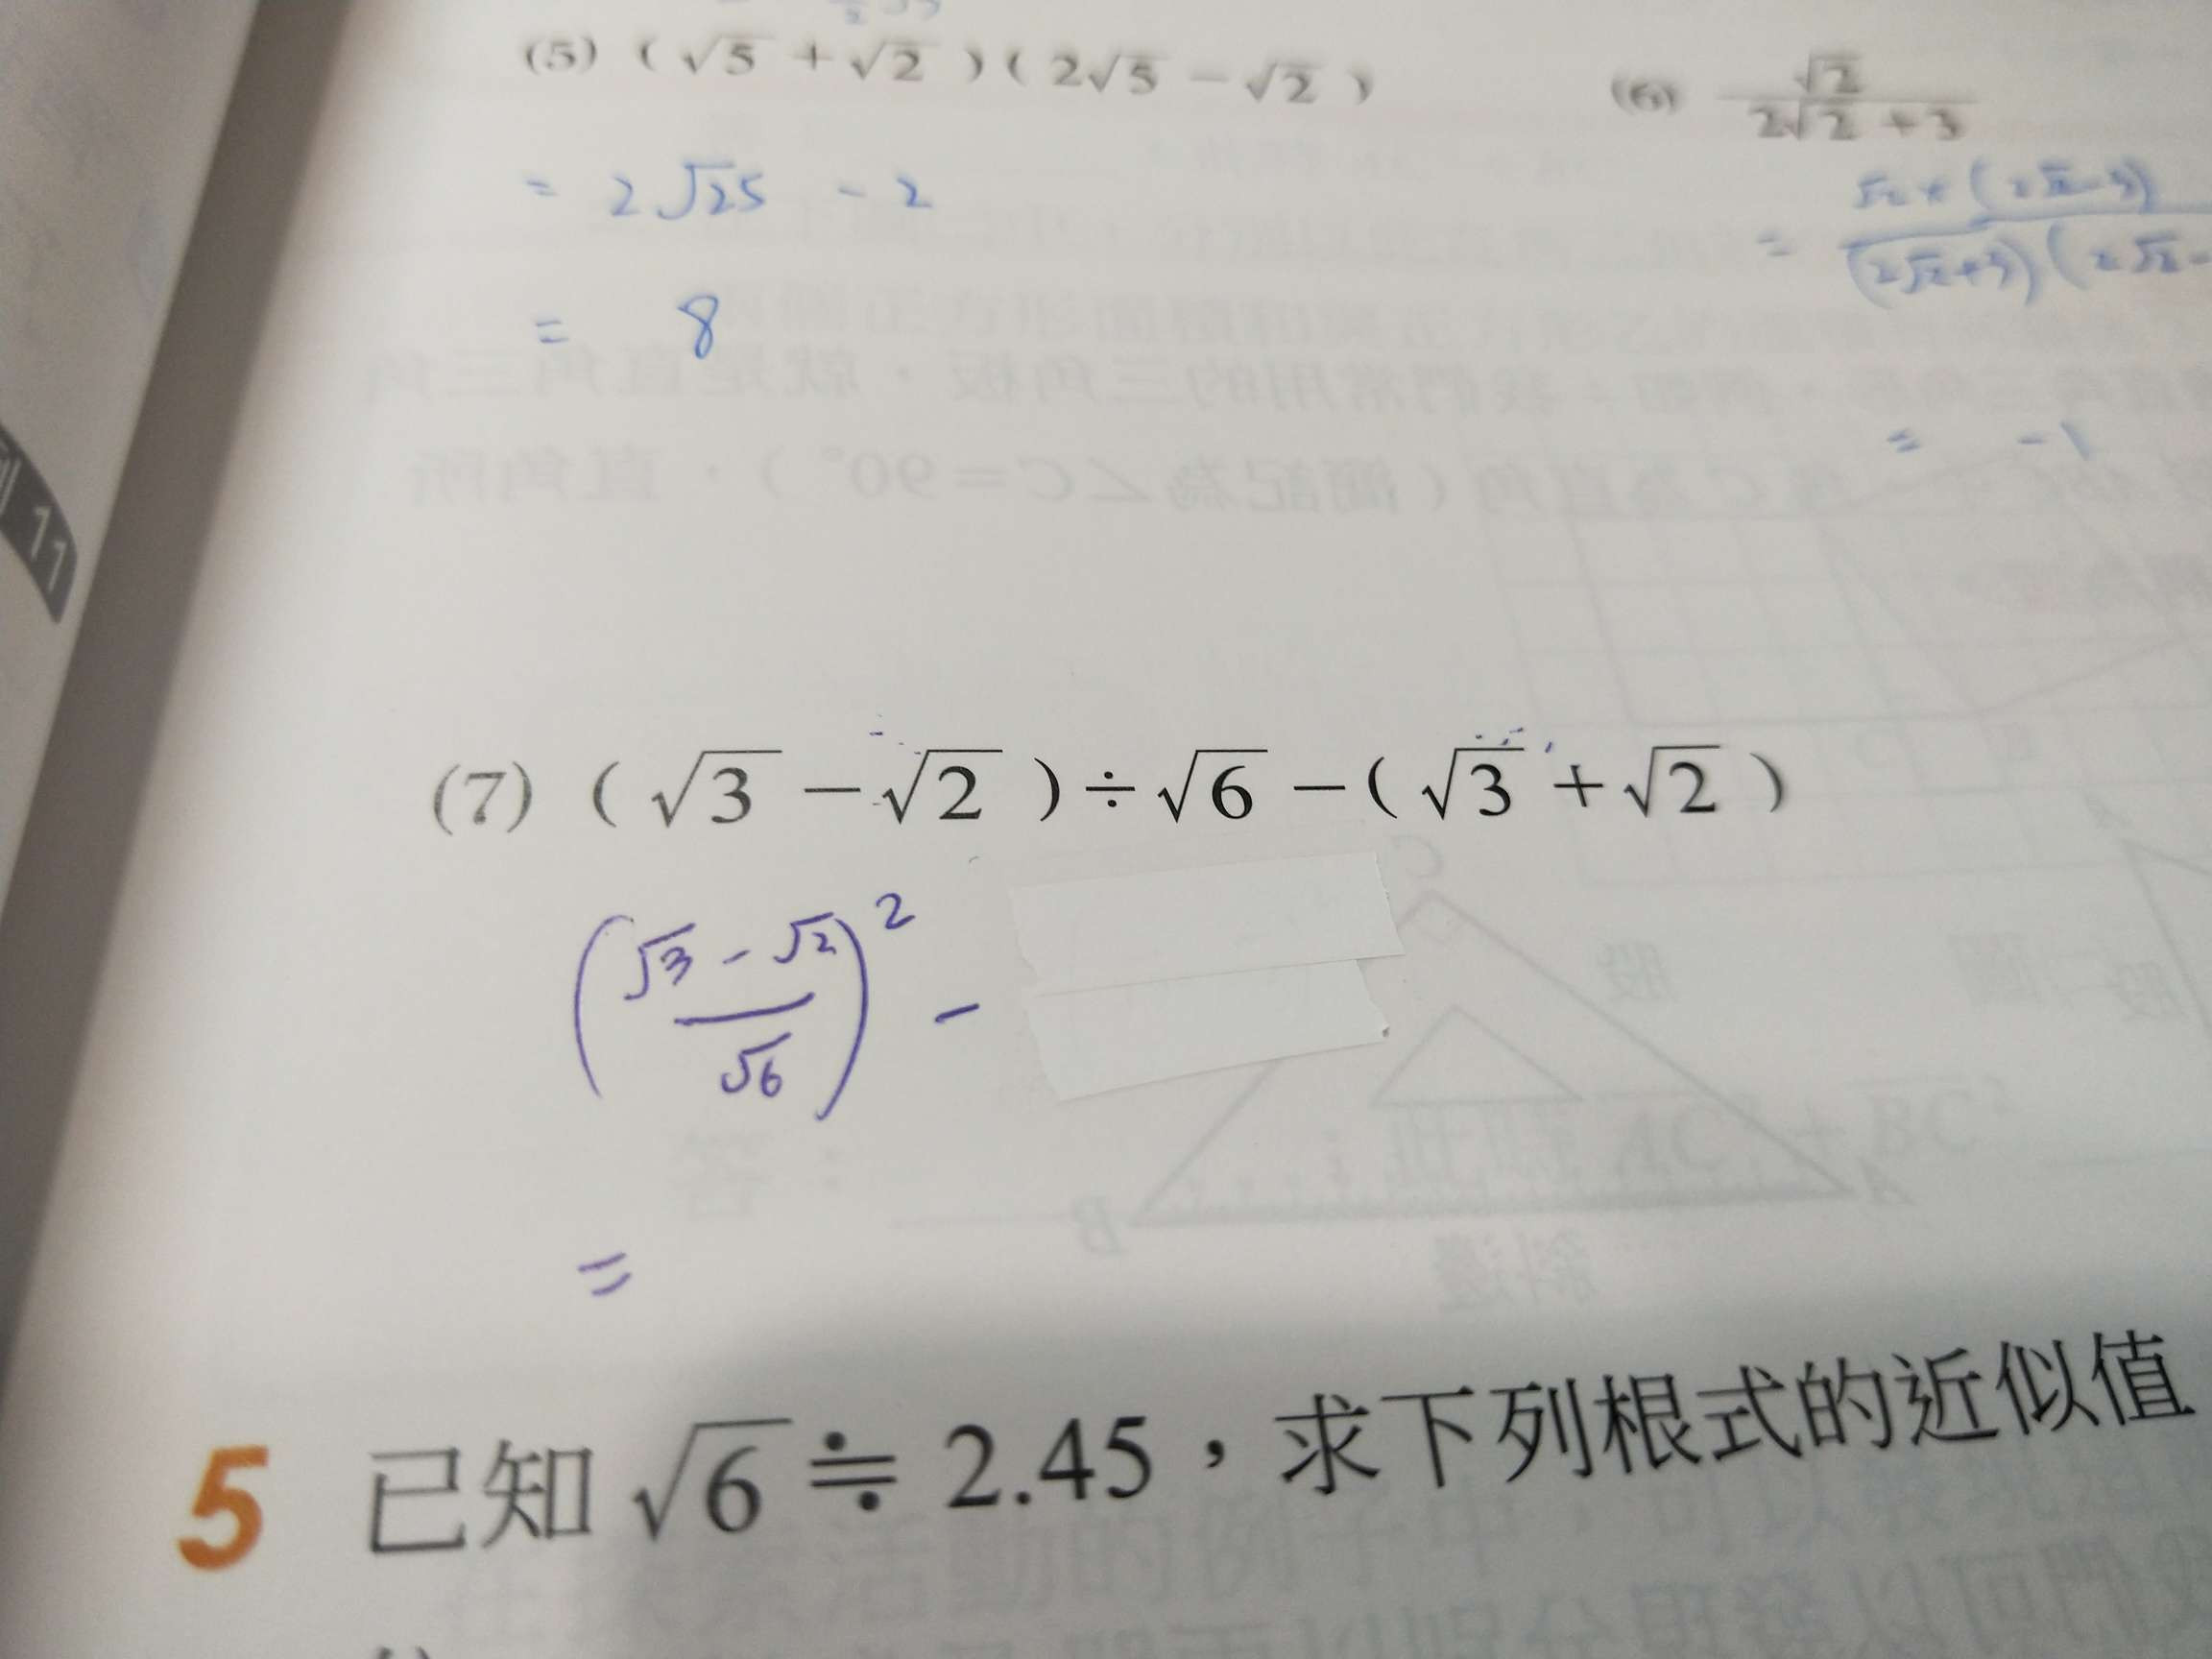 (5) ( √5 + √2 ) ( 2√5 − √2 )
= 2√25 - 2
= 8
(6) √2 / (2√2 + 3)
= √2 × (2√2 - 3) / (2√2+3)(2√2 -
= -1
11
(7) ( √3 − √2 ) ÷ √6 − ( √3 + √2 )
((√3 - √2) / √6)² -
=
5 已知 √6 ≒ 2.45，求下列根式的近似值